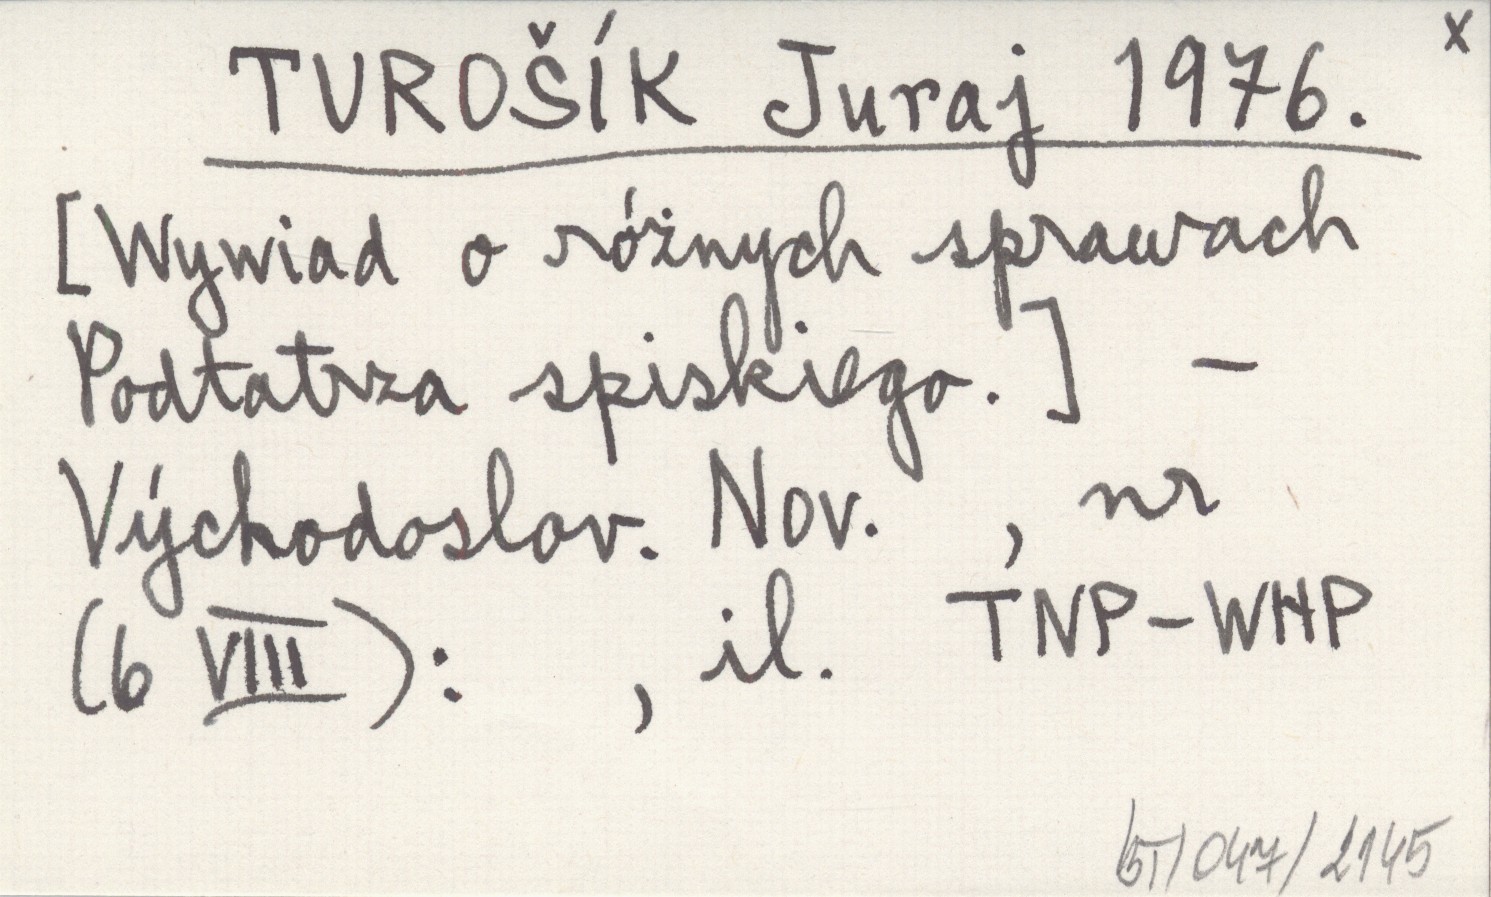 x
TUROŠÍK Juraj 1976.
[Wywiad o różnych sprawach
Podtatrza spiskiego.] –
Východoslov. Nov. , nr
(6 VIII): , il. TNP-WHP
/047/2145